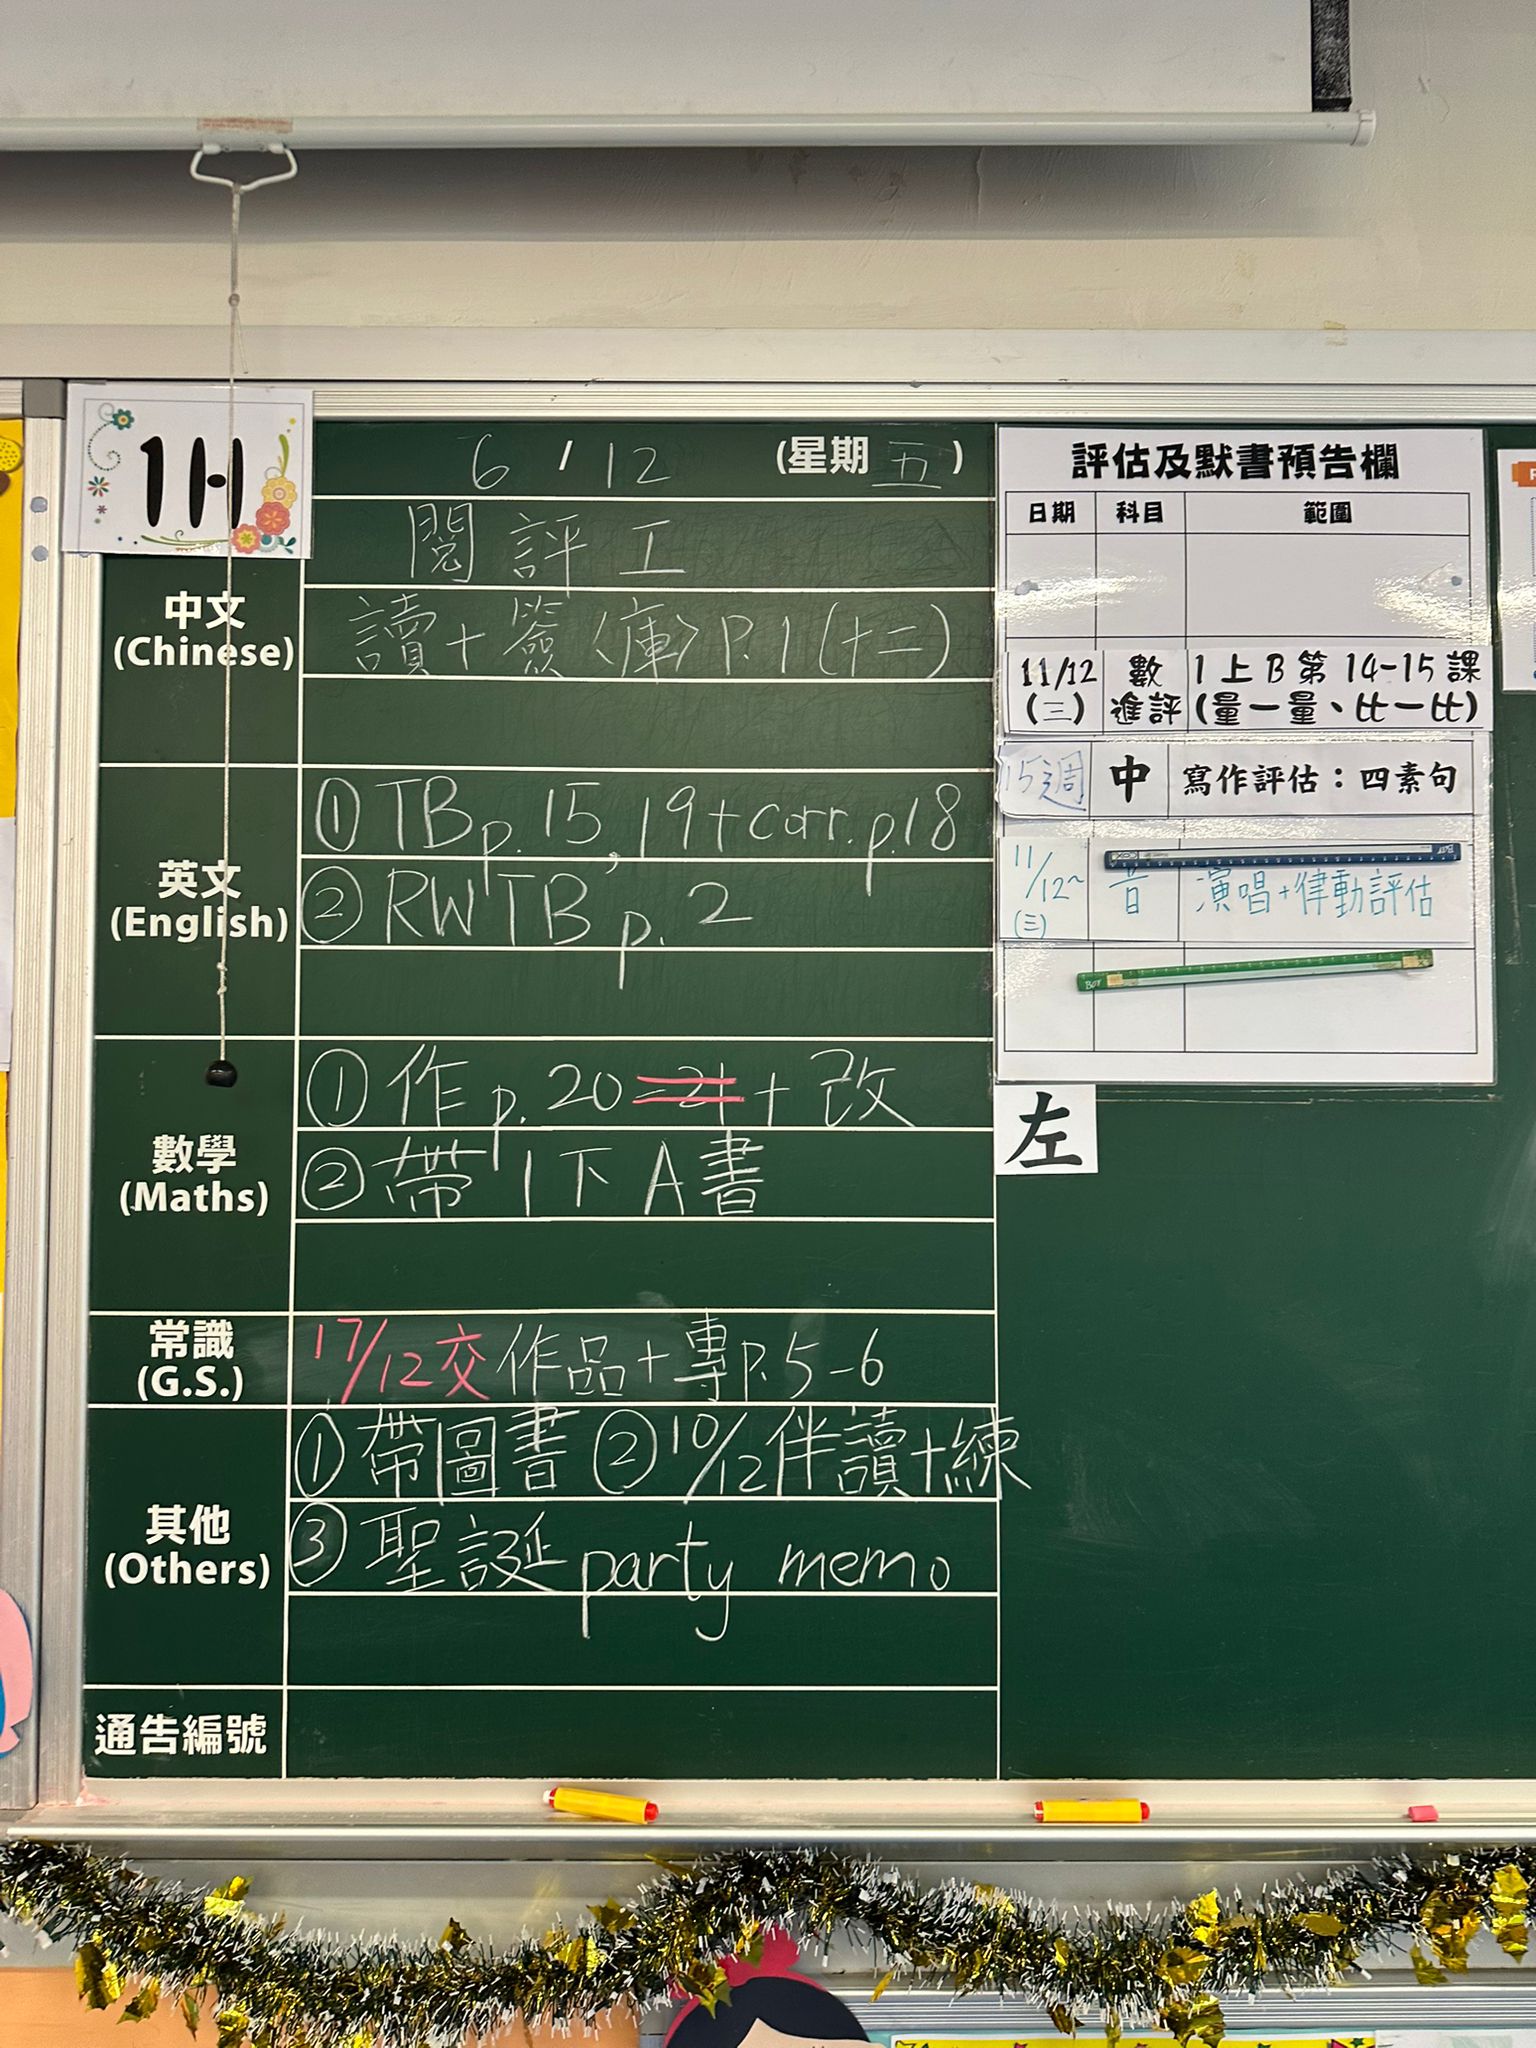 1H
6 / 12 (星期五)
中文
(Chinese)
閱評工
讀+簽〈庫〉P.1(十二)
英文
(English)
① TB p.15,19+corr.p.18
② RWTB p.2
數學
(Maths)
① 作 p.20-21+改
② 帶1下A書
常識
(G.S.)
17/12交作品+專P.5-6
其他
(Others)
①帶圖書 ②10/12伴讀+練
③聖誕party memo
通告編號
評估及默書預告欄
日期 科目 範圍
11/12 數 1上B第14-15課
(三) 進評 (量一量、比一比)
15週 中 寫作評估：四素句
11/12~ 音 演唱+律動評估
(三)
左